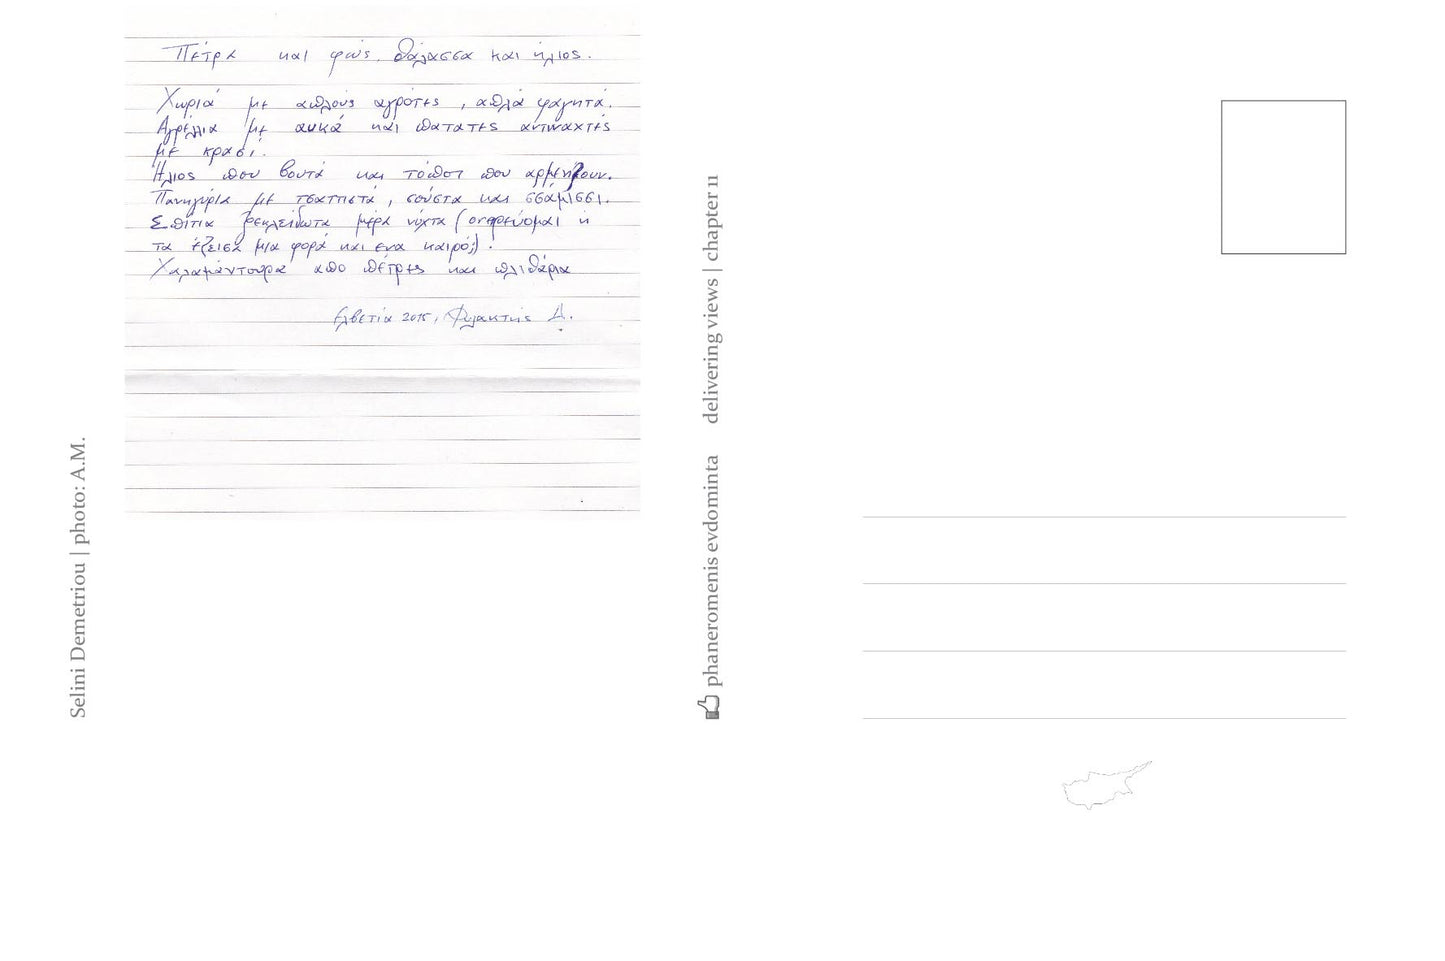 Πέτρα και φώς. θάλασσα και ήλιος.
Χωριά με απλούς αγρότες, απλά φαγητά.
Αγρέλλια με αυκά και πατατες αντιναχτές
με κρασί.
Ήλιος που βουτά και τόποι που αρμενίζουν.
Πανηγύρια με τσαττιστά, σούστα και σσάμισσι.
Σπίτια ξεκλείδωτα μέρα νύχτα (ονειρεύομαι ή
τα έζεισα μια φορά και ενα καιρό;).
Χαλαμάντουρα απο πέτρες και πλιθάρια
Ελβετία 2015, Φυλακτής Δ.
Selini Demetriou | photo: A.M.
phaneromenis evdominta delivering views | chapter 11